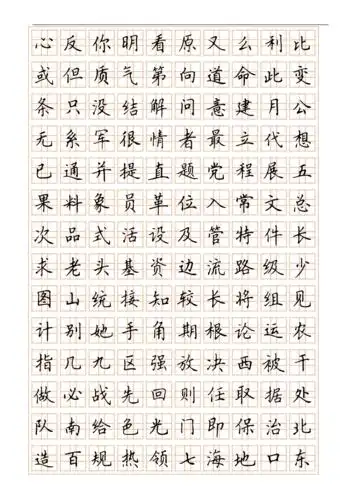 心反你明看原又么利比
或但质气第向道命此变
条只没结解问意建月公
无系军很情者最立代想
已通并提直题党程展五
果料象员革位入常文总
次品式活设及管特件长
求老头基资边流路级少
图山统接知较长将组见
计别她手角期根论运农
指几九区强放决西被干
做必战先回则任取据处
队南给色光门即保治北
造百规热领七海地口东